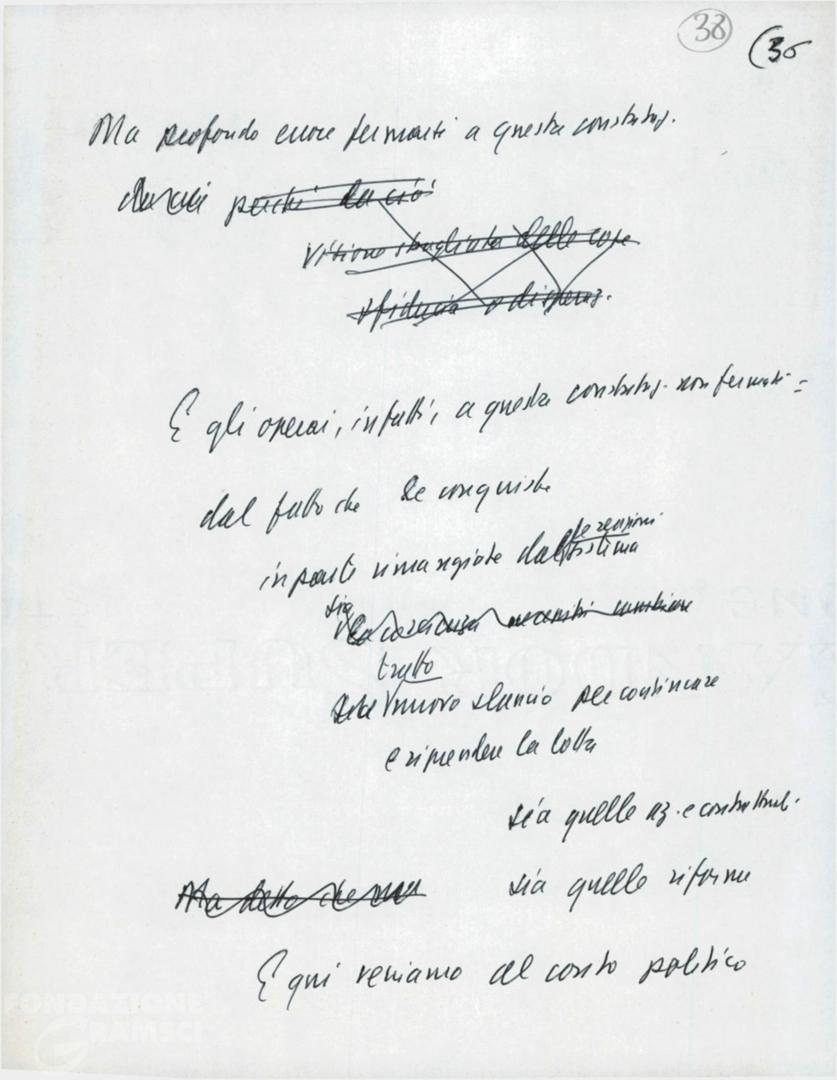 38 (36
Ma profondo errore fermarsi a questa constataz.
perché da ciò
Visione sbagliata delle cose
sfiducia o disperaz.
E gli operai, infatti, a questa constataz. non fermati =
dal fatto che le conquiste
le tensioni
in parte rimangiate dal sistema
sia
la carenza necessità cambiare
tratto
nuovo slancio per continuare
e riprendere la lotta
sia quelle az. e contrattual.
Ma detto che non sia quelle riforme
E qui veniamo al costo politico
FONDAZIONE
GRAMSCI